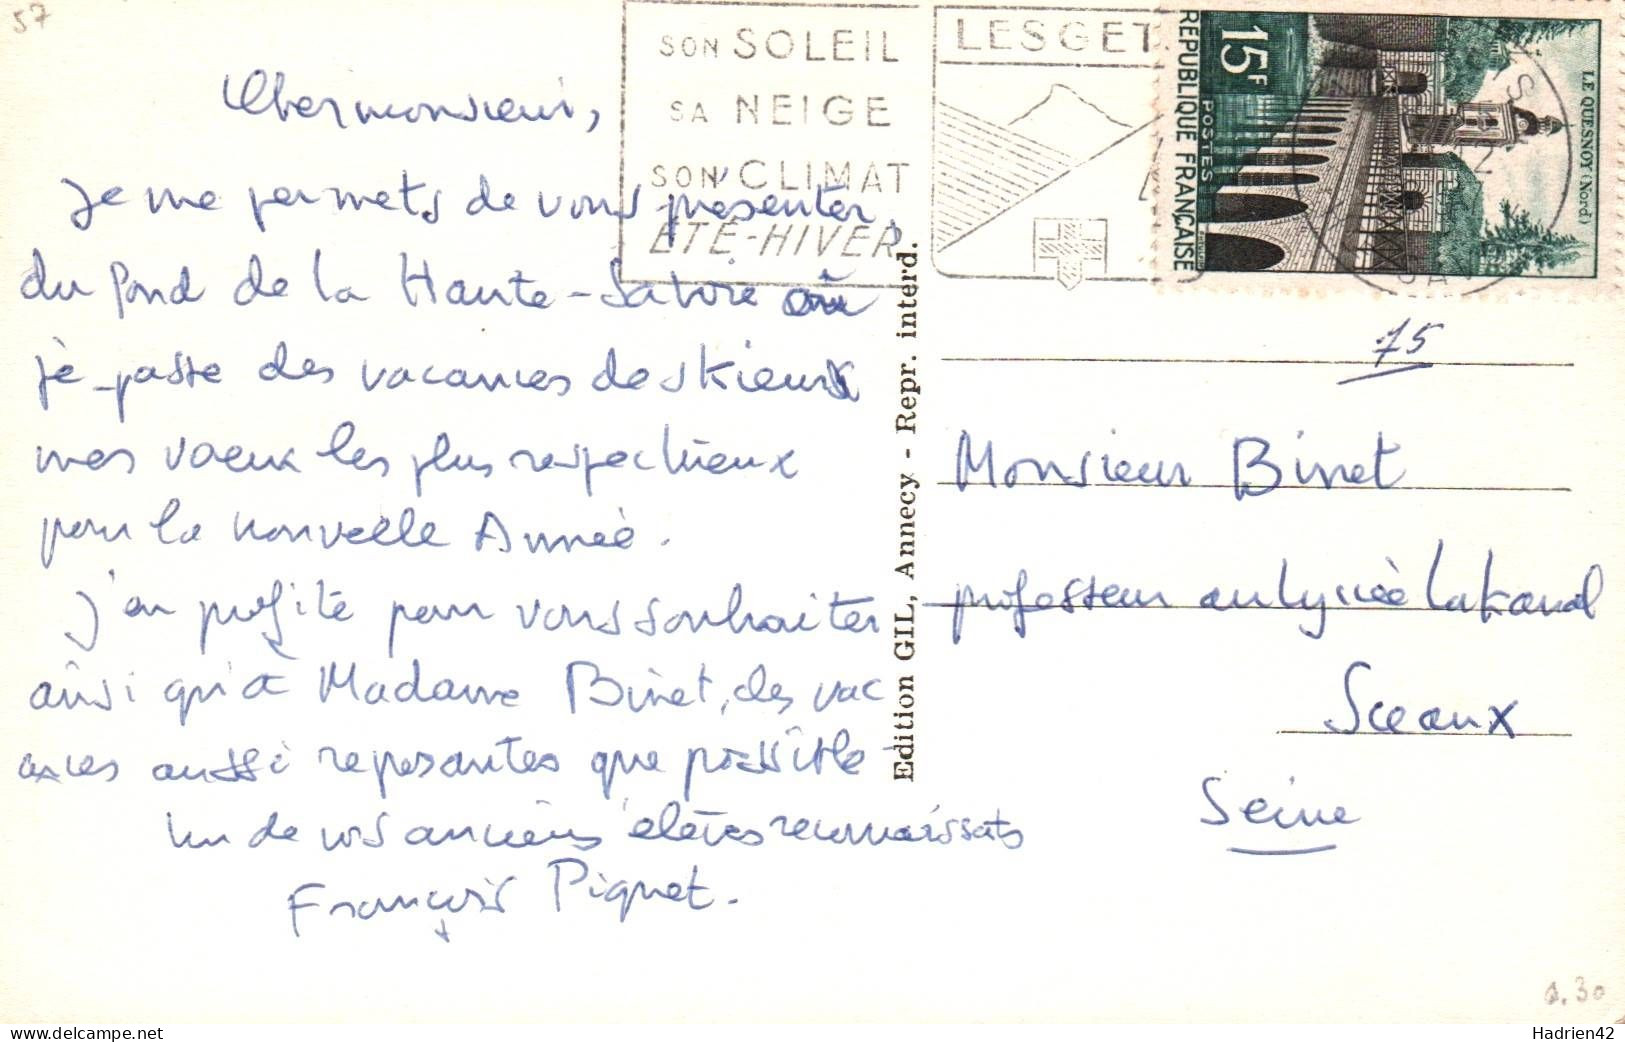 57
Cher monsieur,
Je me permets de vous présenter,
du fond de la Haute-Savoie où
je passe des vacances de skieur
mes vœux les plus respectueux
pour la nouvelle Année.
J'en profite pour vous souhaiter
ainsi qu'à Madame Binet, des vac
ances aussi reposantes que possible
Un de vos anciens élèves reconnaissants
François Piquet.
SON SOLEIL
SA NEIGE
SON CLIMAT
ÉTÉ-HIVER
LES GET
15F
POSTES
REPUBLIQUE FRANÇAISE
LE QUESNOY (Nord)
Edition GIL, Annecy - Repr. interd.
75
Monsieur Binet
professeur au lycée Lakanal
Sceaux
Seine
1.30
Hadrien42